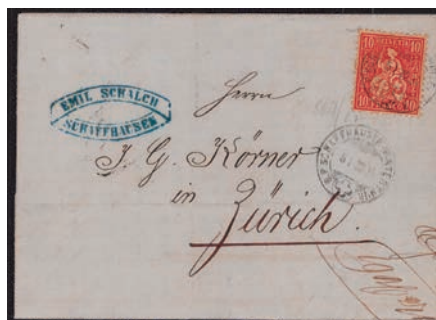 EMIL SCHALCH
SCHAFFHAUSEN
10 HELVETIA 10
Herrn
J. G. Körner
in
Zürich.
SCHAFFHAUSEN